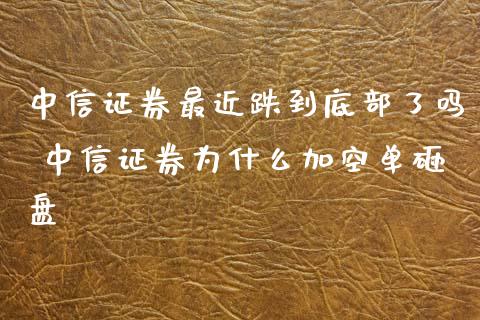 中信证券最近跌到底部了吗
中信证券为什么加空单砸
盘